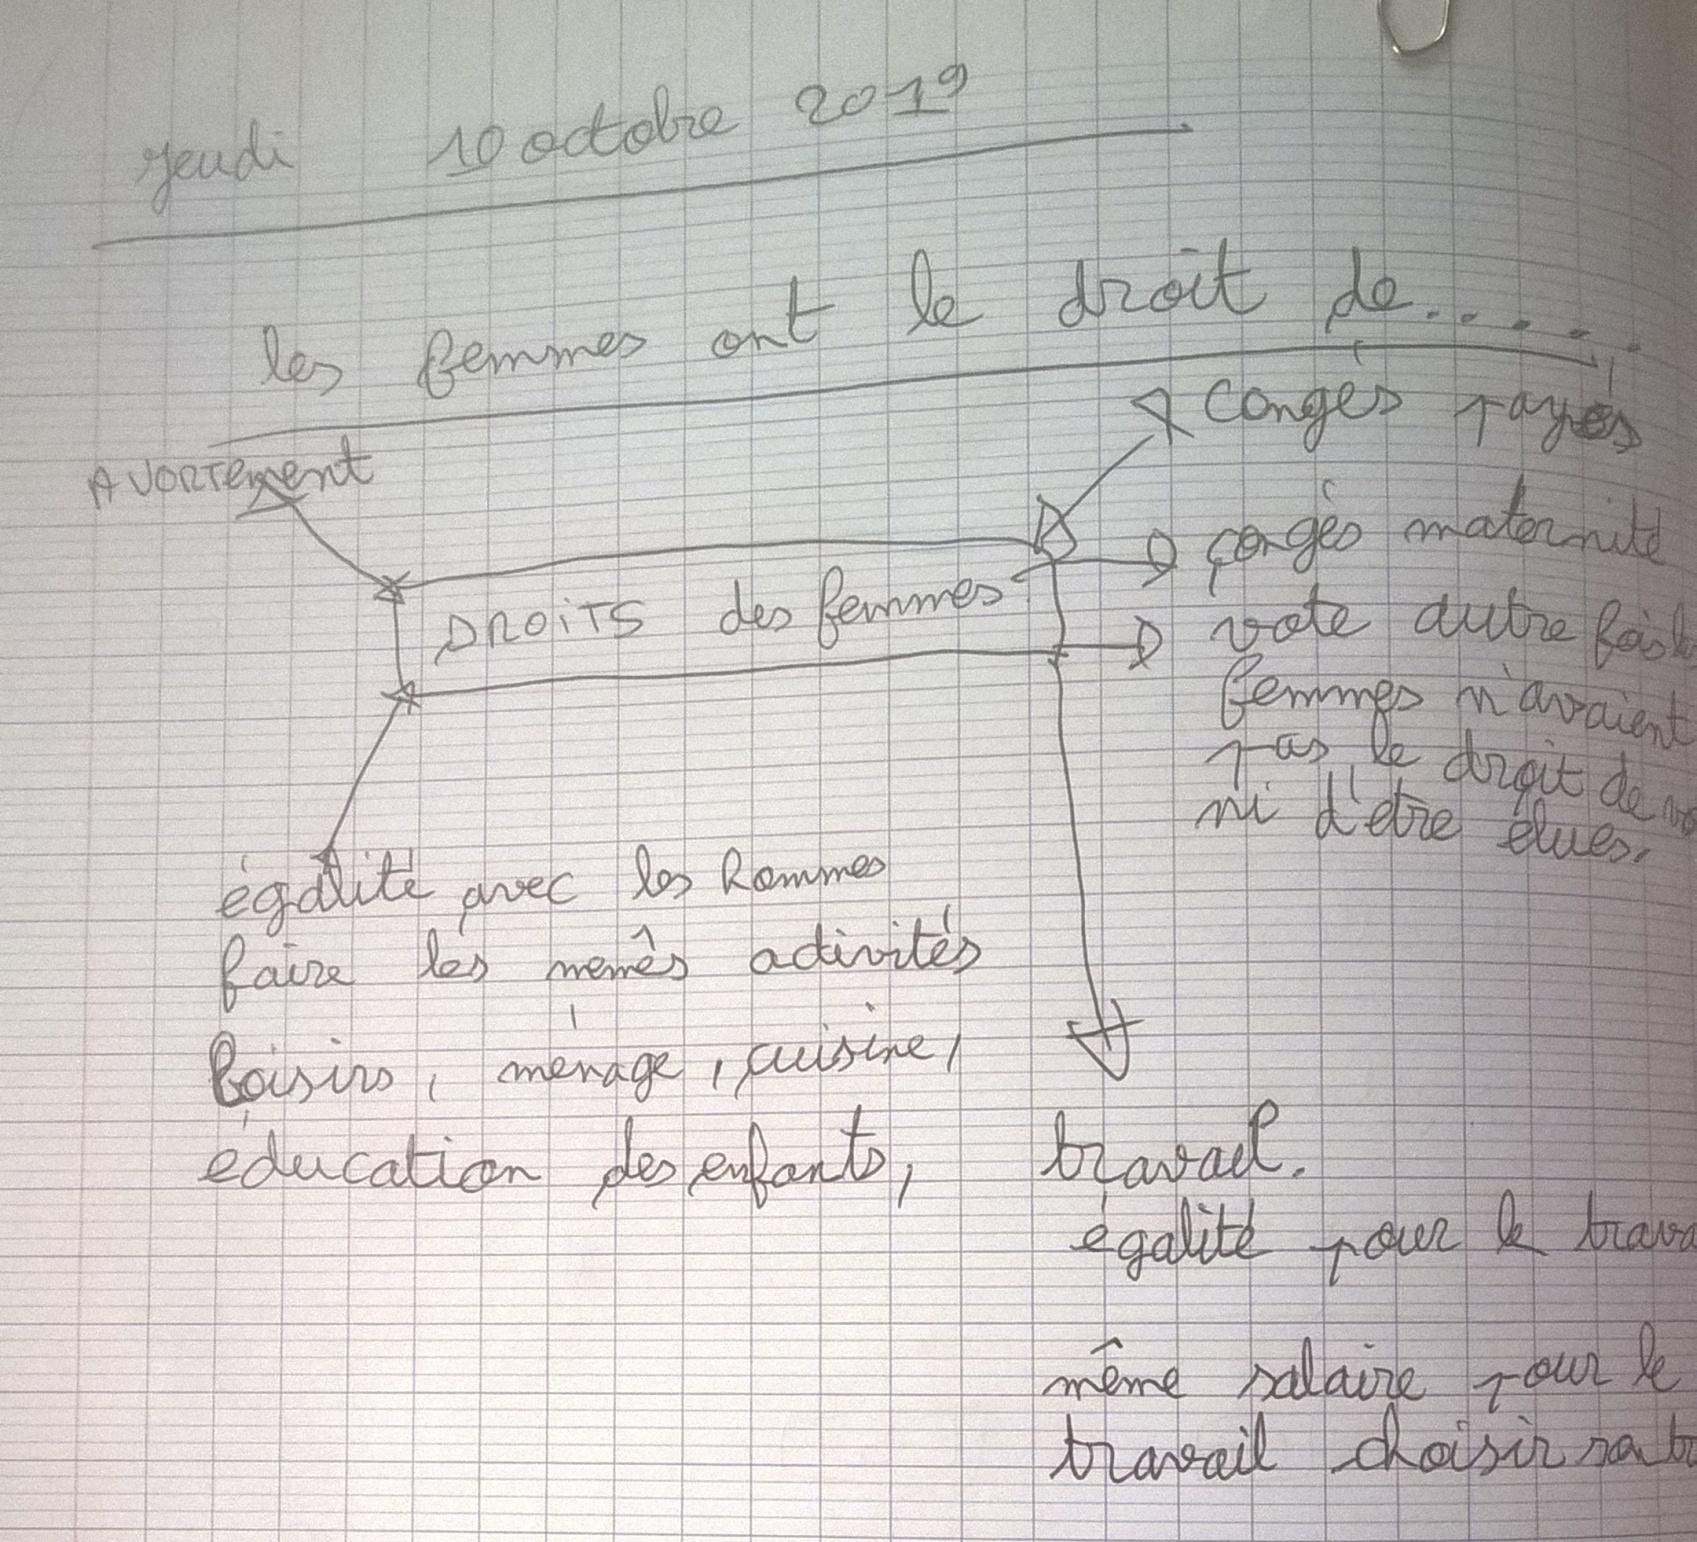 jeudi 10 octobre 2019
les femmes ont le droit de.....
AVORTement
congés payés
DROITS des femmes
congés maternité
vote autre fois
femmes n'avaient
pas le droit de
ni d'être élues.
égalité avec les hommes
faire les mêmes activités
loisirs, ménage, cuisine,
éducation des enfants,
travail.
égalité pour le
même salaire pour le
travail choisir